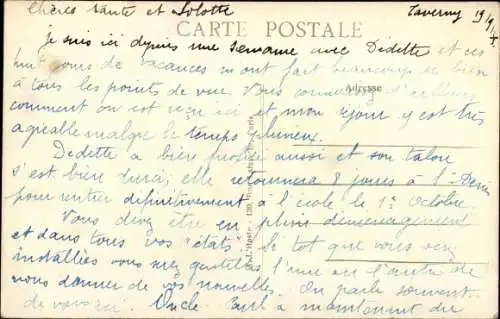 Chères tante et Lolotte Taverny 19
CARTE POSTALE
je suis ici depuis une semaine avec Dédette et ces
huit jours de vacances m'ont fait beaucoup de bien
à tous les points de vue. Vous
Adresse
comment on est reçu ici et mon séjour y est très
agréable malgré le temps pluvieux.
Dédette a bien profité aussi et son talon
s'est bien durci; elle retournera 8 jours à
pour rentrer définitivement à l'école le 1er Octobre
Vous devez être en plein déménagement
et dans tous vos "états". Si tôt que vous serez
installées vous serez gentilles l'une ou l'autre de
nous donner de vos nouvelles. On parle souvent
de vous ici. Oncle Paul a maintenant du